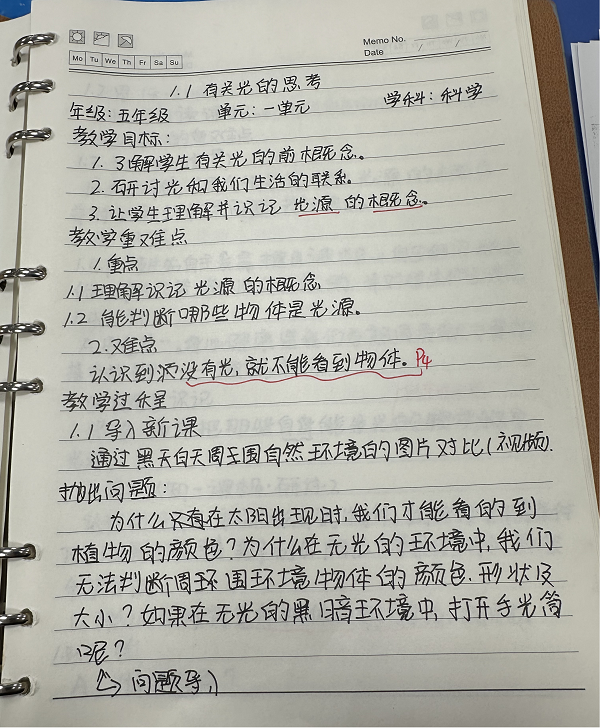 Memo No.
Mo Tu We Th Fr Sa Su
Date / /
1.1 有关光的思考
年级：五年级 单元：一单元 学科：科学
教学目标：
1. 了解学生有关光的前概念。
2. 研讨光和我们生活的联系。
3. 让学生理解并识记 光源 的概念。
教学重难点
1. 重点
1.1 理解识记 光源 的概念
1.2 能判断哪些物体是光源。
2. 难点
认识到没有光，就不能看到物体。P4
教学过程
1.1 导入新课
通过黑天白天周围自然环境的图片对比（视频）.
抛出问题：
为什么只有在太阳出现时，我们才能看的到
植物的颜色？为什么在无光的环境中，我们
无法判断周环围环境物体的颜色.形状及
大小？如果在无光的黑暗环境中，打开手光筒
呢？
问题导入